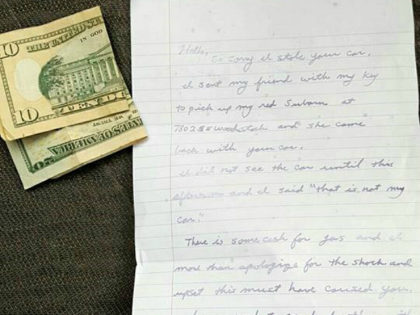 10
THE UNITED STATES
IN GOD
10
Hello,
So sorry I stole your car.
I sent my friend with my key
to pick up my red Subaru at
7802 SE Woodstock and she came
back with your car.
I did not see the car until this
afternoon and I said "that is not my
car."
There is some cash for gas and I
more than apologize for the shock and
upset this must have caused you.